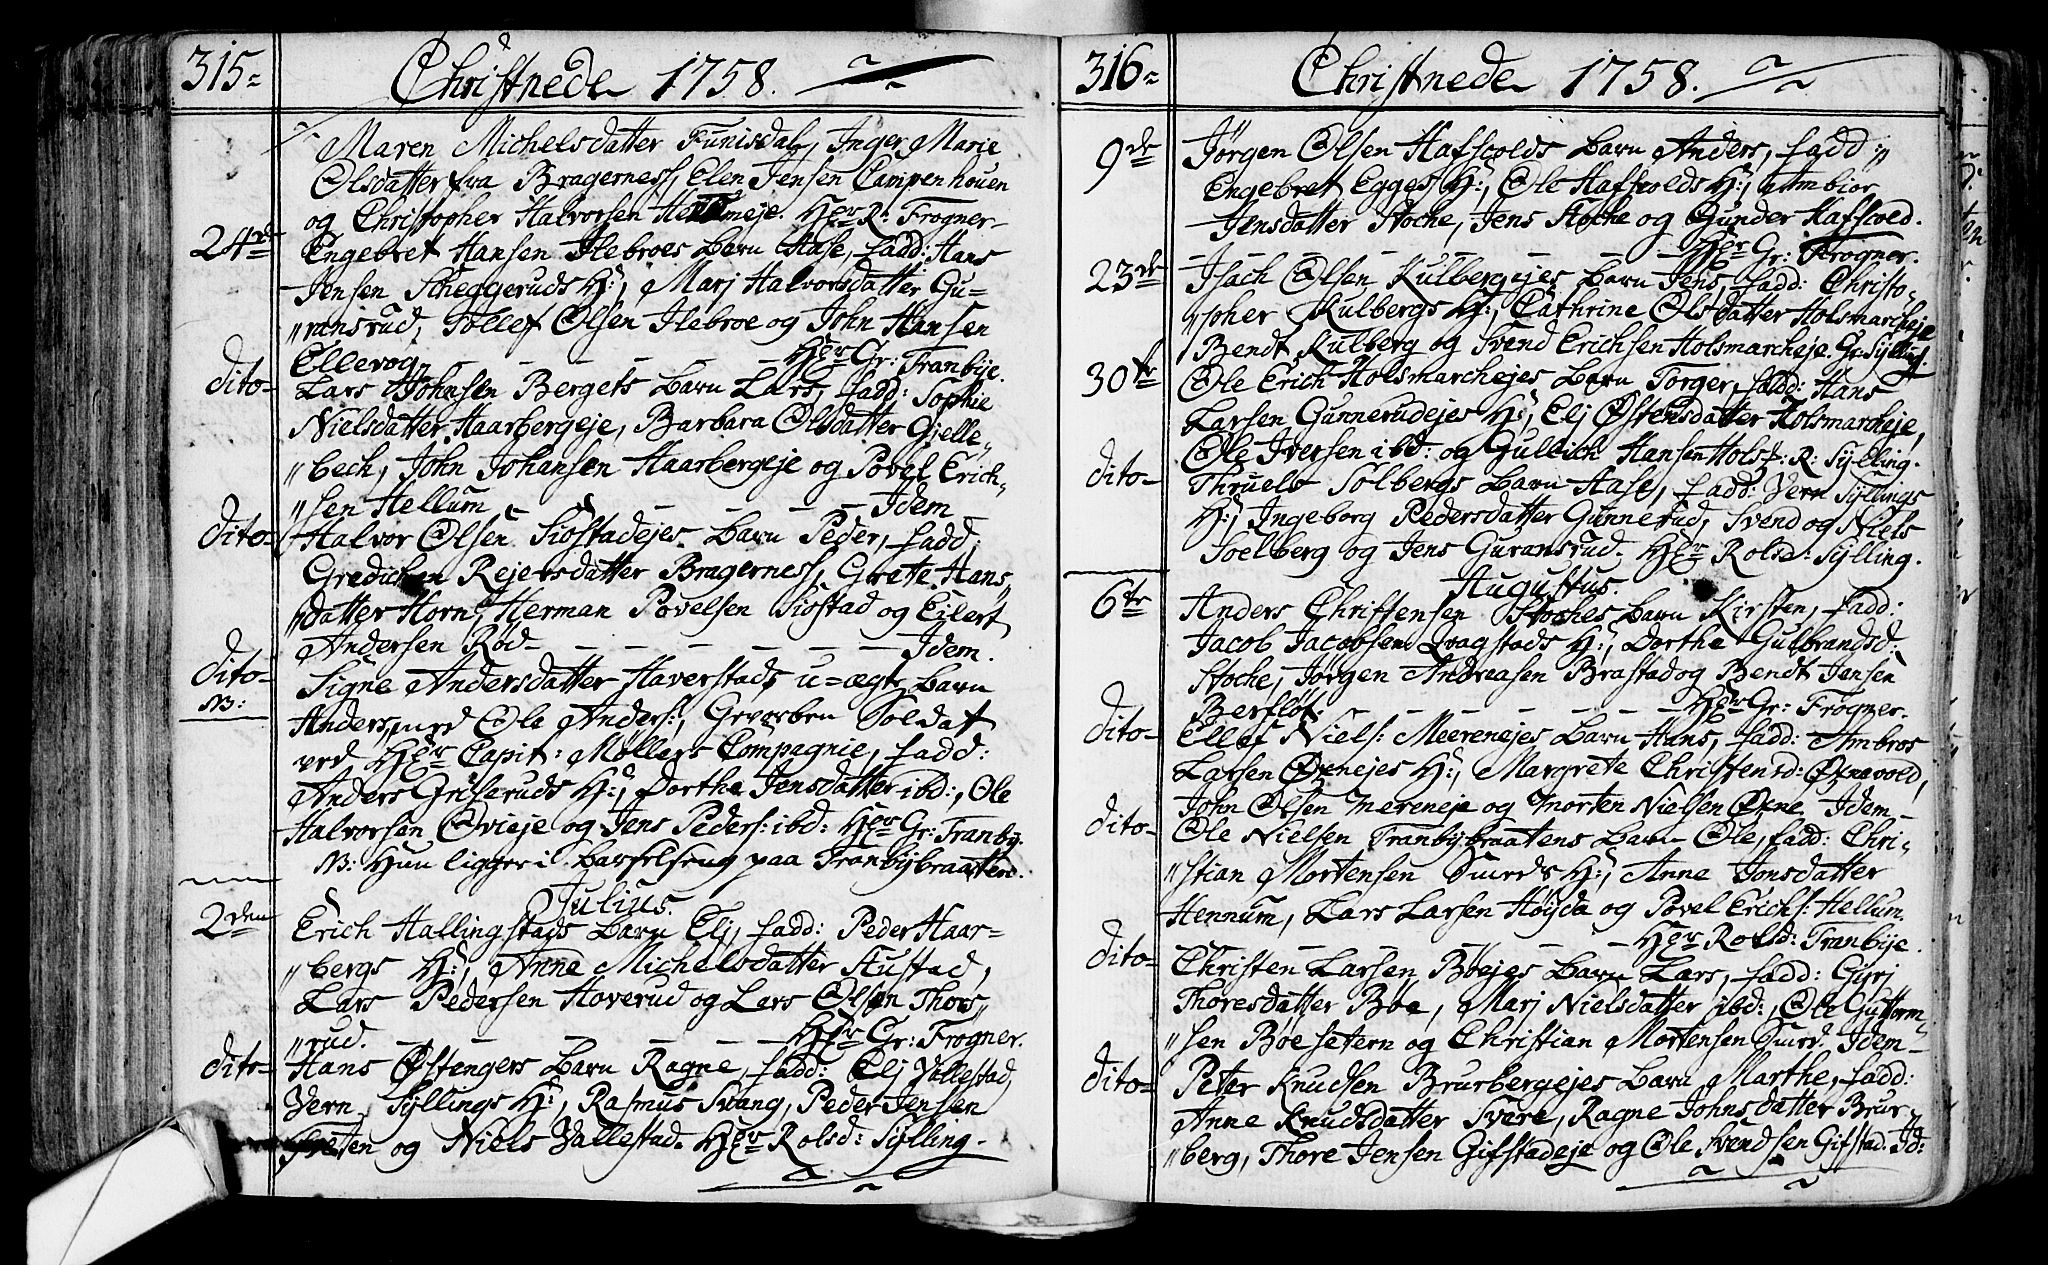 315.
Christnede 1758.
Maren Michelsdatter Funisdal, Inger Marie
Olsdatter fra Bragerness, Elen Jensen Campenhouen
og Christopher Halvorsen Her. R. Frogner.
24de Engebret Hansen Ilebroes Barn Aase, fadd: Hans
Jensen Scheggeruds H:, Marj Halvorsdatter Gu=
"ransrud, Tollef Olsen Ilebroe og John Hansen
Ellevog. Her Gr: Tranbije.
dito- Lars Johnsen Bergets Barn Lars, fadd: Sophie
Nielsdatter Haarbergeje, Barbara Olsdatter Gjelle=
"bech, John Johansen Haarbergeje og Povel Erich=
"sen Hellum Idem
dito- Halvor Olsen Siøstadejes Barn Peder, fadd:
Gredichen Rejersdatter Bragerness, Grete Hans=
"datter Horn, Herman Povelsen Siøstad og Eilert
Andersen Rød Idem.
dito- Signe Andersdatter Haverstads u=ægte Barn
N: Anders, med Ole Anders:, Gevorben Soldat
ved Her Capit: Møllers Compagnie, fadd:
Anders Griseruds H:, Dorthe Jensdatter ibd:, Ole
Halvorsen Ovieje og Jens Peders: ibd: Her Gr: Tranby.
N: Hun ligger i Barselseng paa Tranbybraaten.
Julius.
2den Erich Hallingstads Barn Elj, fadd: Peder Haar=
"bergs H:, Anne Michelsdatter Hustad,
Lars Pedersen Hoverud og Lars Olsen Thors=
"rud. Her Gr: Frogner.
dito- Hans Østengers Barn Ragne, fadd: Elj Vallestad,
Vern Syllings H:, Rasmus Svang, Peder Jensen
og Niels Vallestad. Her Rolsd: Sylling.
316.
Christnede 1758.
9de Jørgen Olsen Hafscolds Barn Anders, fadd:
Engebret Egges H:, Ole Hafscolds H:, Ambior
Jensdatter Stoche, Jens Stoche og Gunder Hafscold.
Her Gr: Frogner.
23de Isach Olsen Kulbergejes Barn Jens, fadd: Christo=
"pher Kulbergs H:, Cathrine Olsdatter Holsmarcheje
Bendt Kulberg og Svend Erichsen Holsmarcheje. Gr. Sylling.
30te Ole Erich Holsmarchejes Barn Torger, fadd: Hans
Larsen Gunnerudejes H:, Elj Østensdatter Holsmarcheje,
Ole Iversen ibd: og Gullich Hansen Holsf: R: Sylling.
dito- Thruels Solbergs Barn Aase, fadd: Vern Syllings
H:, Ingeborg Pedersdatter Gunnerud, Svend og Niels
Soelberg og Jens Guransrud. Her Rolsd: Sylling.
Augustus.
6te Anders Christensen Stoches Barn Kirsten, fadd:
Jacob Jacobsen Qvagstads H:, Dorthe Gulbrandsd:
Stoche, Jørgen Andreasen Brastad og Bendt Jensen
Berfløt. Her Gr: Frogner.
dito- Ellef Niels: Meerenejes Barn Hans, fadd: Ambros
Larsen Øxnejes H:, Margrete Christensd: Øxnevold,
John Olsen Mereneje og Morten Nielsen Øxne Idem-
dito- Ole Nielsen Tranbybraatens Barn Ole, fadd: Chri=
"stian Mortensen Smeds H:, Anne Jonsdatter
Hennum, Lars Larsen Høyda og Povel Erichs: Hellum.
Her Rolsd: Tranbije.
dito- Christen Larsen Bøejes Barn Lars, fadd: Gurj
Thoresdatter Bøe, Marj Nielsdatter ibd:, Ole Guttorm=
"sen Bøesetern og Christian Mortensen Smed. Idem-
dito- Peter Knudsen Brurbergejes Barn Marthe, fadd:
Anne Knudsdatter Svere, Ragne Johnsdatter Brur
"berg, Thore Jensen Gifstadeje og Ole Svendsen Gifstad. Id: